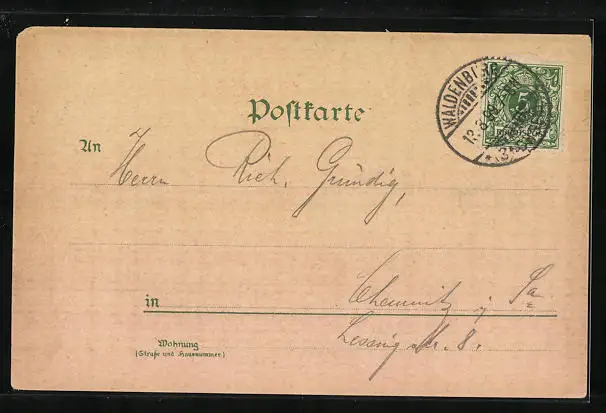 Postkarte
An
Herrn Rich. Gründig,
in Chemnitz i/ Sa
Lessing Str. 8.
Wohnung
(Straße und Hausnummer)
WALDENBURG
12.8.
* (S
5